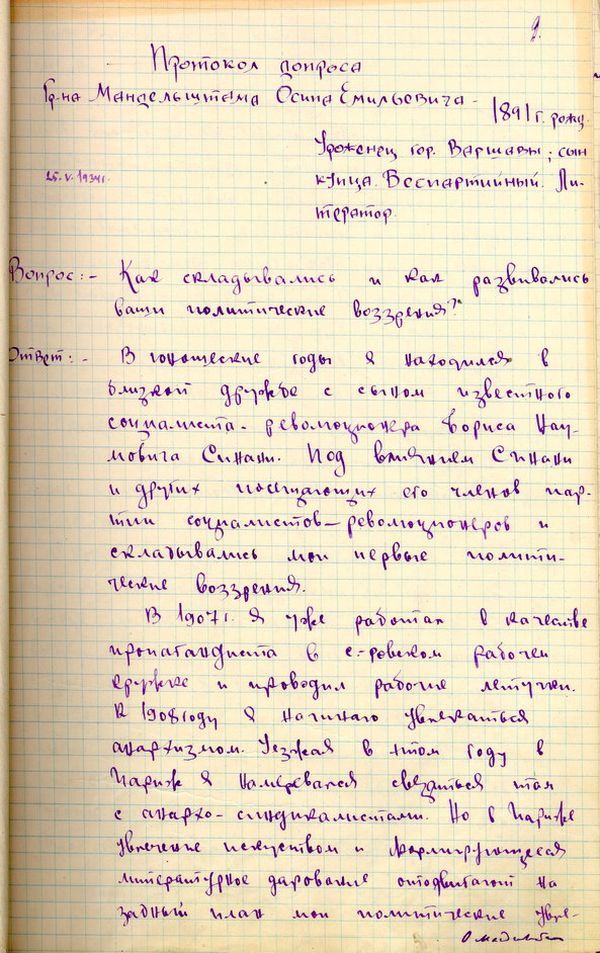 9.
Протокол допроса
Гр-на Мандельштама Осипа Емильевича -
1891 г. рожд.
Уроженец гор. Варшавы; сын
25.V.1934 г.
купца. Беспартийный. Ли-
тератор.
Вопрос: - Как складывались и как развивались
ваши политические воззрения?
Ответ: - В юношеские годы я находился в
близкой дружбе с сыном известного
социалиста-революционера Бориса Нау-
мовича Синани. Под влиянием Синани
и других посещающих его членов пар-
тии социалистов-революционеров и
складывались мои первые полити-
ческие воззрения.
В 1907 г. я уже работал в качестве
пропагандиста в с.-ровском рабочем
кружке и проводил рабочие летучки.
К 1908 году я начинаю увлекаться
анархизмом. Уезжая в этом году в
Париж я намеревался связаться там
с анархо-синдикалистами. Но в Париже
увлечение искусством и формирующееся
литературное дарование отодвигают на
задний план мои политические увле-